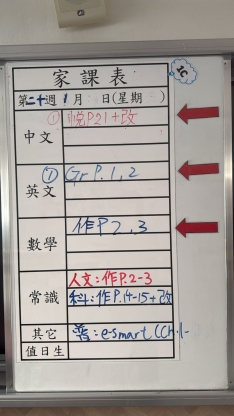 家課表
1C
第二十週 1月 日(星期 )
中文 ① 悅P21+改
英文 ① Gr P.1,2
數學 作P2,3
常識 人文:作P.2-3
科:作P.14-15+改
其它 普:esmart (Ch.1-
值日生